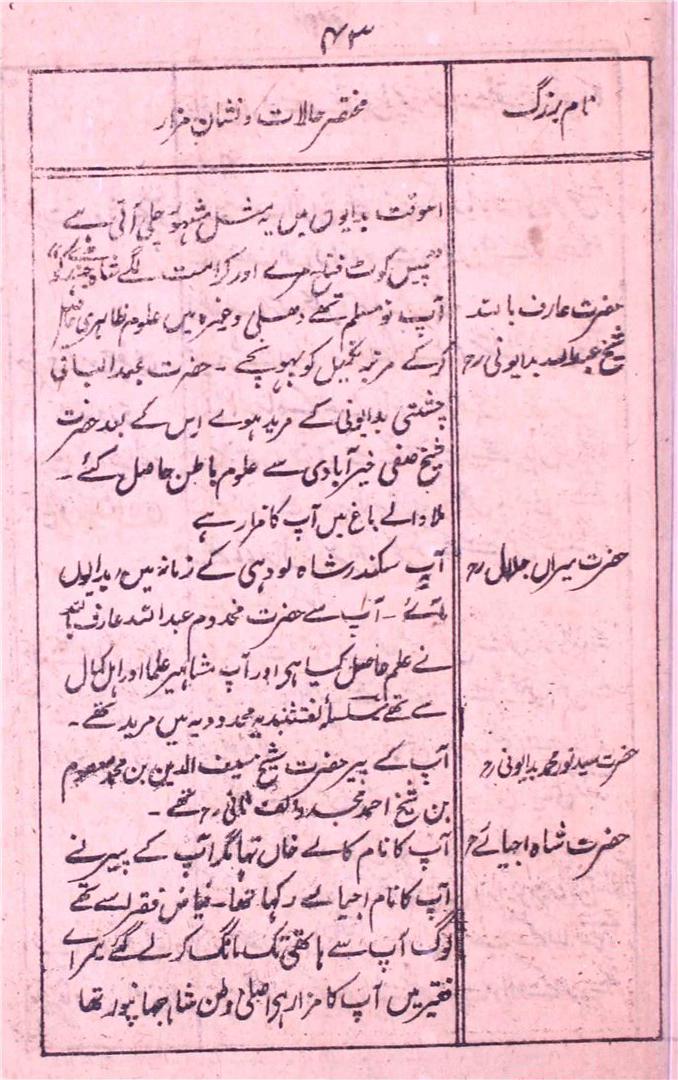 ۴۳
نام بزرگ
مختصر حالات و نشان مزار
اسوقت بدایوں میں یہ مثل مشہور چلی آتی ہے
آپ نو مسلم تھے دھلی وغیرہ میں علوم ظاہری حاصل
حضرت عارف باللہ
کرکے مرتبہ تکمیل کو پہونچے ۔ حضرت
شیخ عبداللہ بدایونی رح
چشتی بدایونی کے مرید ہوے اس کے بعد حضرت
شیخ صفی خیرآبادی سے علوم باطن حاصل کئے ۔
ملا والے باغ میں آپ کا مزار ہے
آپ سکندر شاہ لودہی کے زمانہ میں بدایوں
حضرت میراں جلال رح
آئے ۔ آپ سے حضرت مخدوم عبداللہ عارف باللہ
نے علم حاصل کیا ہی اور آپ مشاہیر علما اور اہل کمال
سے تھے سلسلہ نقشبندیہ مجددویہ میں مرید تھے ۔
آپ کے پیر حضرت شیخ سیف الدین بن محمد معصوم
حضرت سید نور محمد بدایونی رح
بن شیخ احمد مجدد الف ثانی رح تھے ۔
آپ کا نام کالے خاں تہا مگر آپ کے پیر نے
حضرت شاہ اجیالے رح
آپ کا نام اجیالے رکہا تھا ۔ فیاض فقرا سے تھے
لوگ آپ سے ہاتھی تک مانگ کر لے گئے
فقیر میں آپ کا مزار ہی اصلی وطن شاہجہانپور تھا